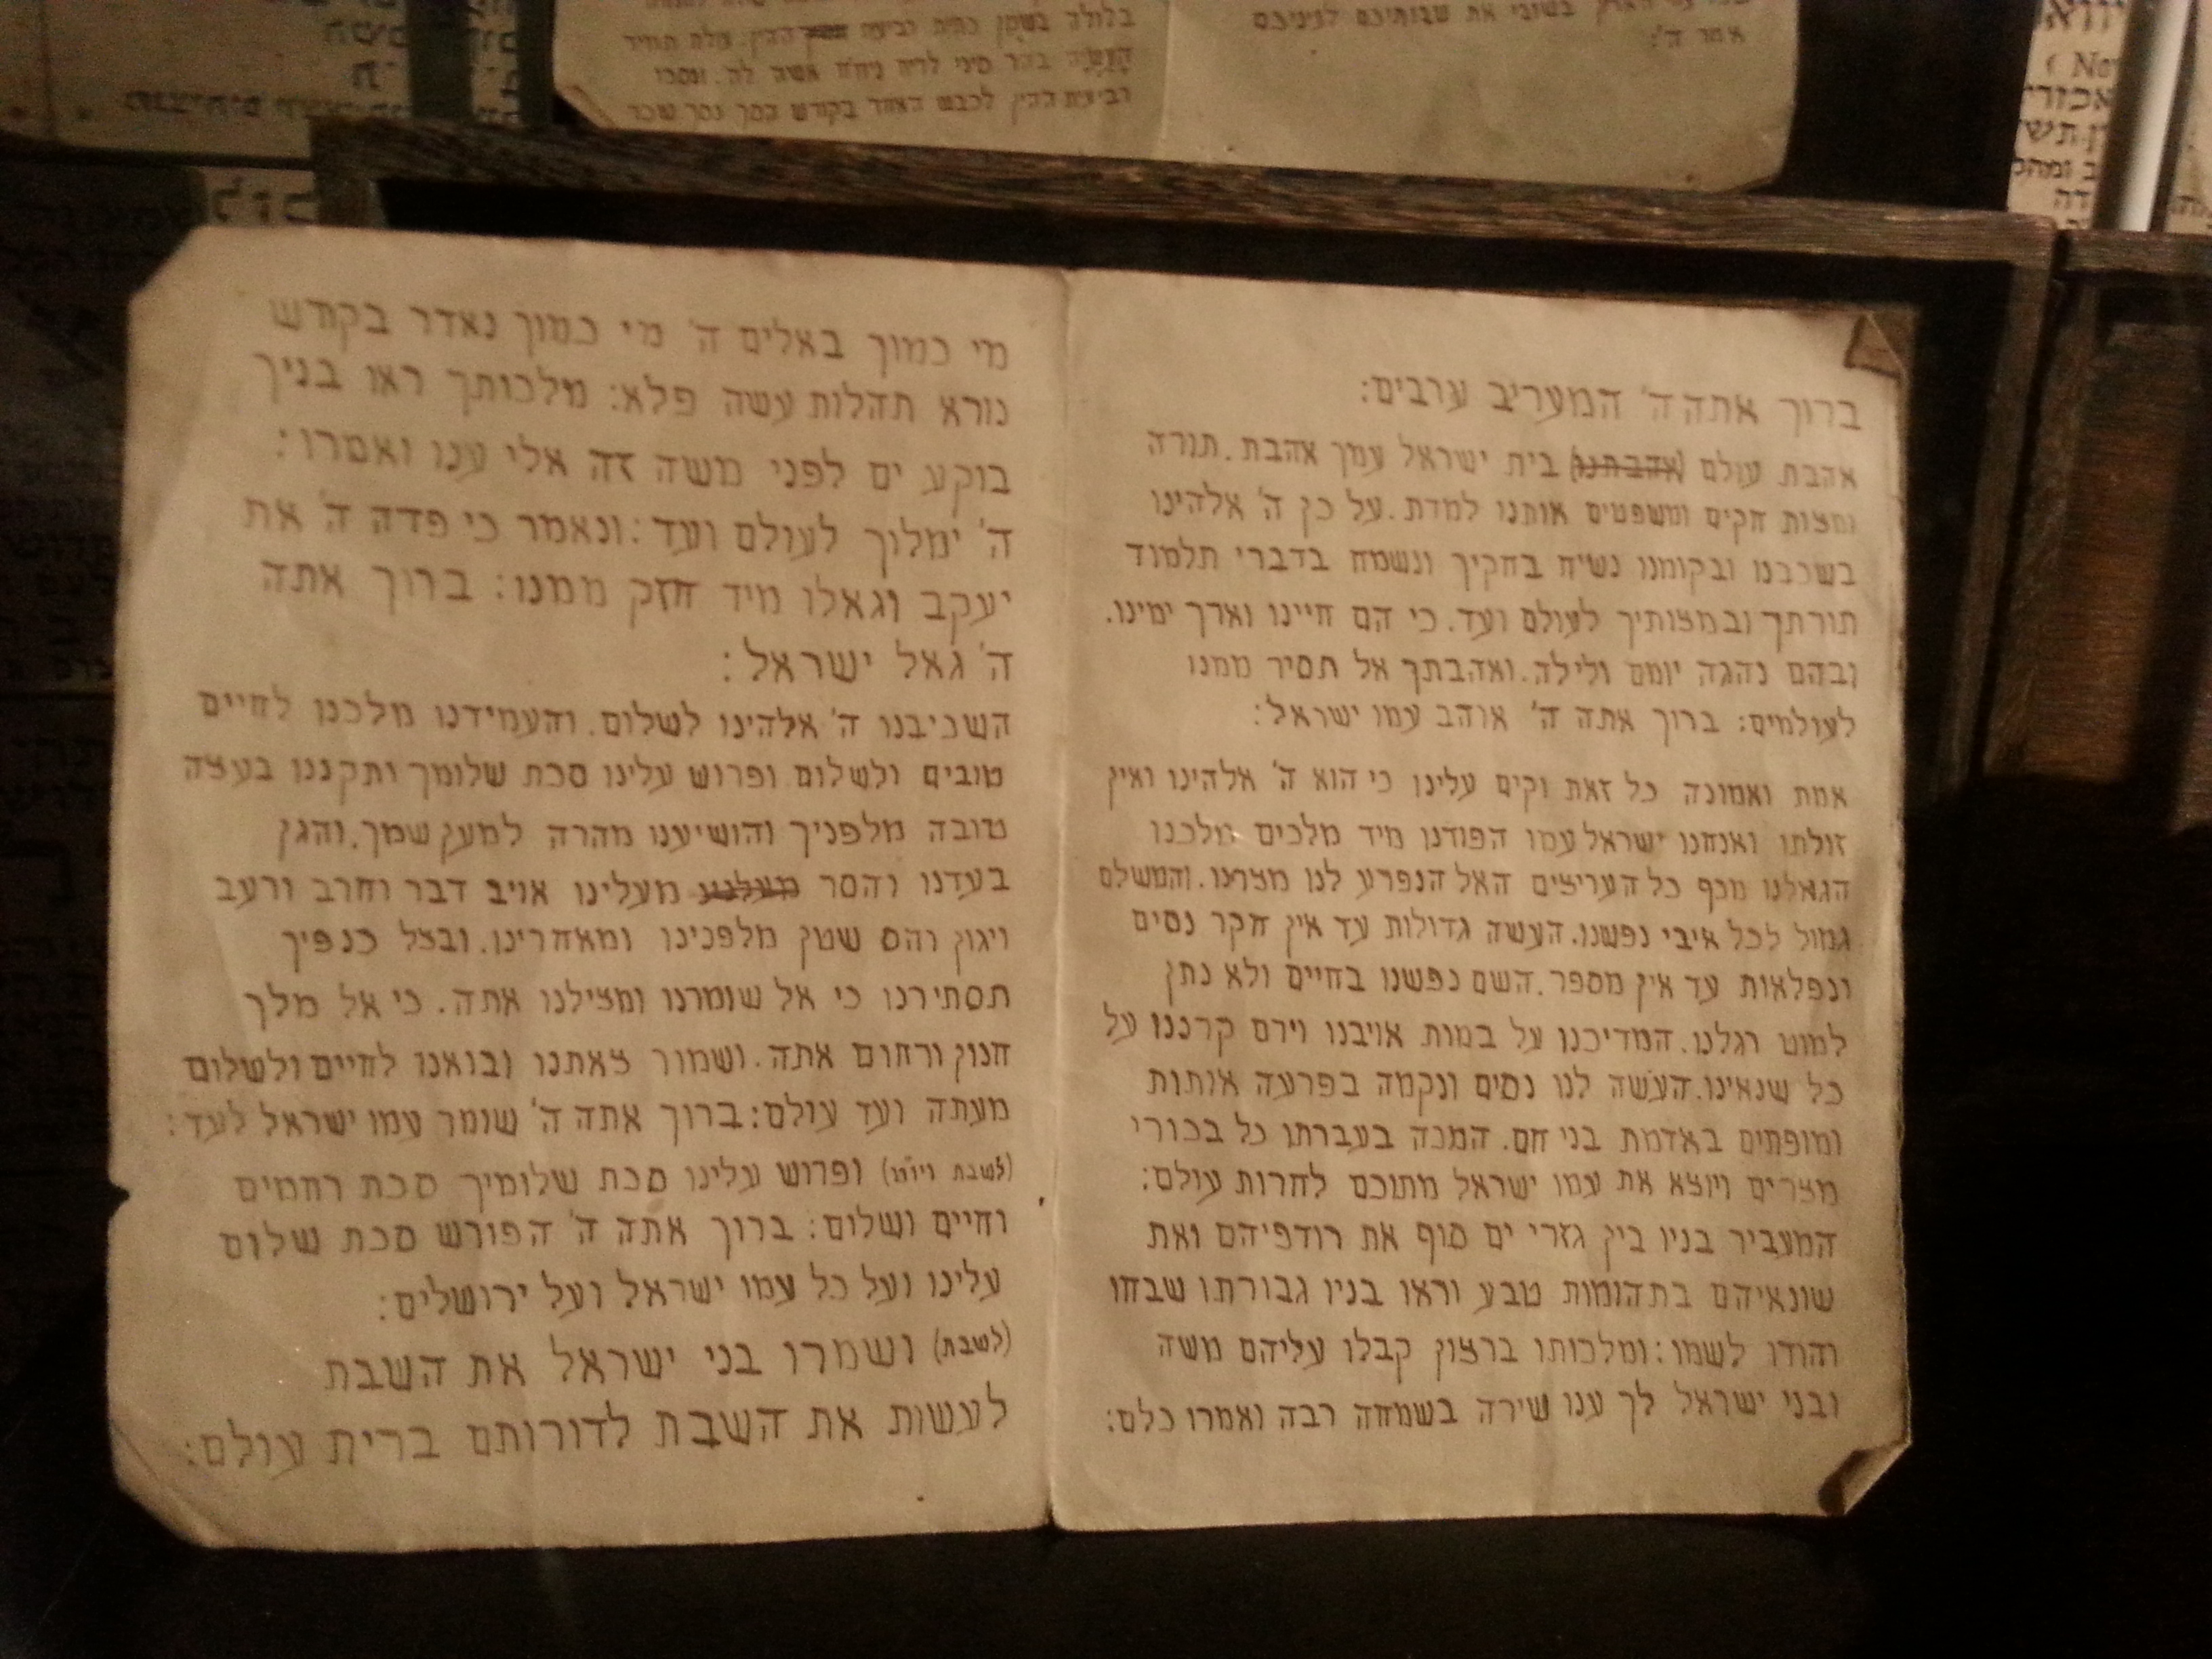 בלולה בשמן כתית רביעית ההין. עלת תמיד
העשיה בהר סיני לריח ניחח אשה לה'. ונסכו
רביעית ההין לכבש האחד בקודש הסך נסך שכר
בשובי את שבותיכם לעיניכם
אמר ה':
ברוך אתה ה' המעריב ערבים:
אהבת עולם (אהבתנו) בית ישראל עמך אהבת. תורה
ומצות חקים ומשפטים אותנו למדת. על כן ה' אלהינו
בשכבנו ובקומנו נשיח בחקיך ונשמח בדברי תלמוד
תורתך ובמצותיך לעולם ועד. כי הם חיינו וארך ימינו.
ובהם נהגה יומם ולילה. ואהבתך אל תסיר ממנו
לעולמים: ברוך אתה ה' אוהב עמו ישראל:
אמת ואמונה כל זאת וקים עלינו כי הוא ה' אלהינו ואין
זולתו ואנחנו ישראל עמו הפודנו מיד מלכים מלכנו
הגאלנו מכף כל העריצים האל הנפרע לנו מצרנו. והמשלם
גמול לכל איבי נפשנו. העשה גדולות עד אין חקר נסים
ונפלאות עד אין מספר. השם נפשנו בחיים ולא נתן
למוט רגלנו. המדיכנו על במות אויבנו וירם קרננו על
כל שנאינו. העשה לנו נסים ונקמה בפרעה אותות
ומופתים באדמת בני חם. המכה בעברתו כל בכורי
מצרים ויוצא את עמו ישראל מתוכם לחרות עולם:
המעביר בניו בין גזרי ים סוף את רודפיהם ואת
שונאיהם בתהומות טבע וראו בניו גבורתו שבחו
והודו לשמו: ומלכותו ברצון קבלו עליהם משה
ובני ישראל לך ענו שירה בשמחה רבה ואמרו כלם:
מי כמוך באלים ה' מי כמוך נאדר בקודש
נורא תהלות עשה פלא: מלכותך ראו בניך
בוקע ים לפני משה זה אלי ענו ואמרו:
ה' ימלוך לעולם ועד: ונאמר כי פדה ה' את
יעקב וגאלו מיד חזק ממנו: ברוך אתה
ה' גאל ישראל:
השכיבנו ה' אלהינו לשלום. והעמידנו מלכנו לחיים
טובים ולשלום ופרוש עלינו סכת שלומך ותקננו בעצה
טובה מלפניך והושיענו מהרה למען שמך. והגן
בעדנו והסר מעלינו אויב דבר וחרב ורעב
ויגון והס שטן מלפנינו ומאחרינו. ובצל כנפיך
תסתירנו כי אל שומרנו ומצילנו אתה. כי אל מלך
חנון ורחום אתה. ושמור צאתנו ובואנו לחיים ולשלום
מעתה ועד עולם: ברוך אתה ה' שומר עמו ישראל לעד:
(לשבת ויו"ט) ופרוש עלינו סכת שלומיך סכת רחמים
וחיים ושלום: ברוך אתה ה' הפורש סכת שלום
עלינו ועל כל עמו ישראל ועל ירושלים:
(לשבת) ושמרו בני ישראל את השבת
לעשות את השבת לדורותם ברית עולם: